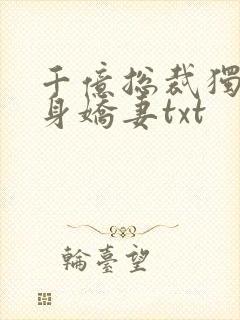 千億總裁獨
身嬌妻txt
輪臺望